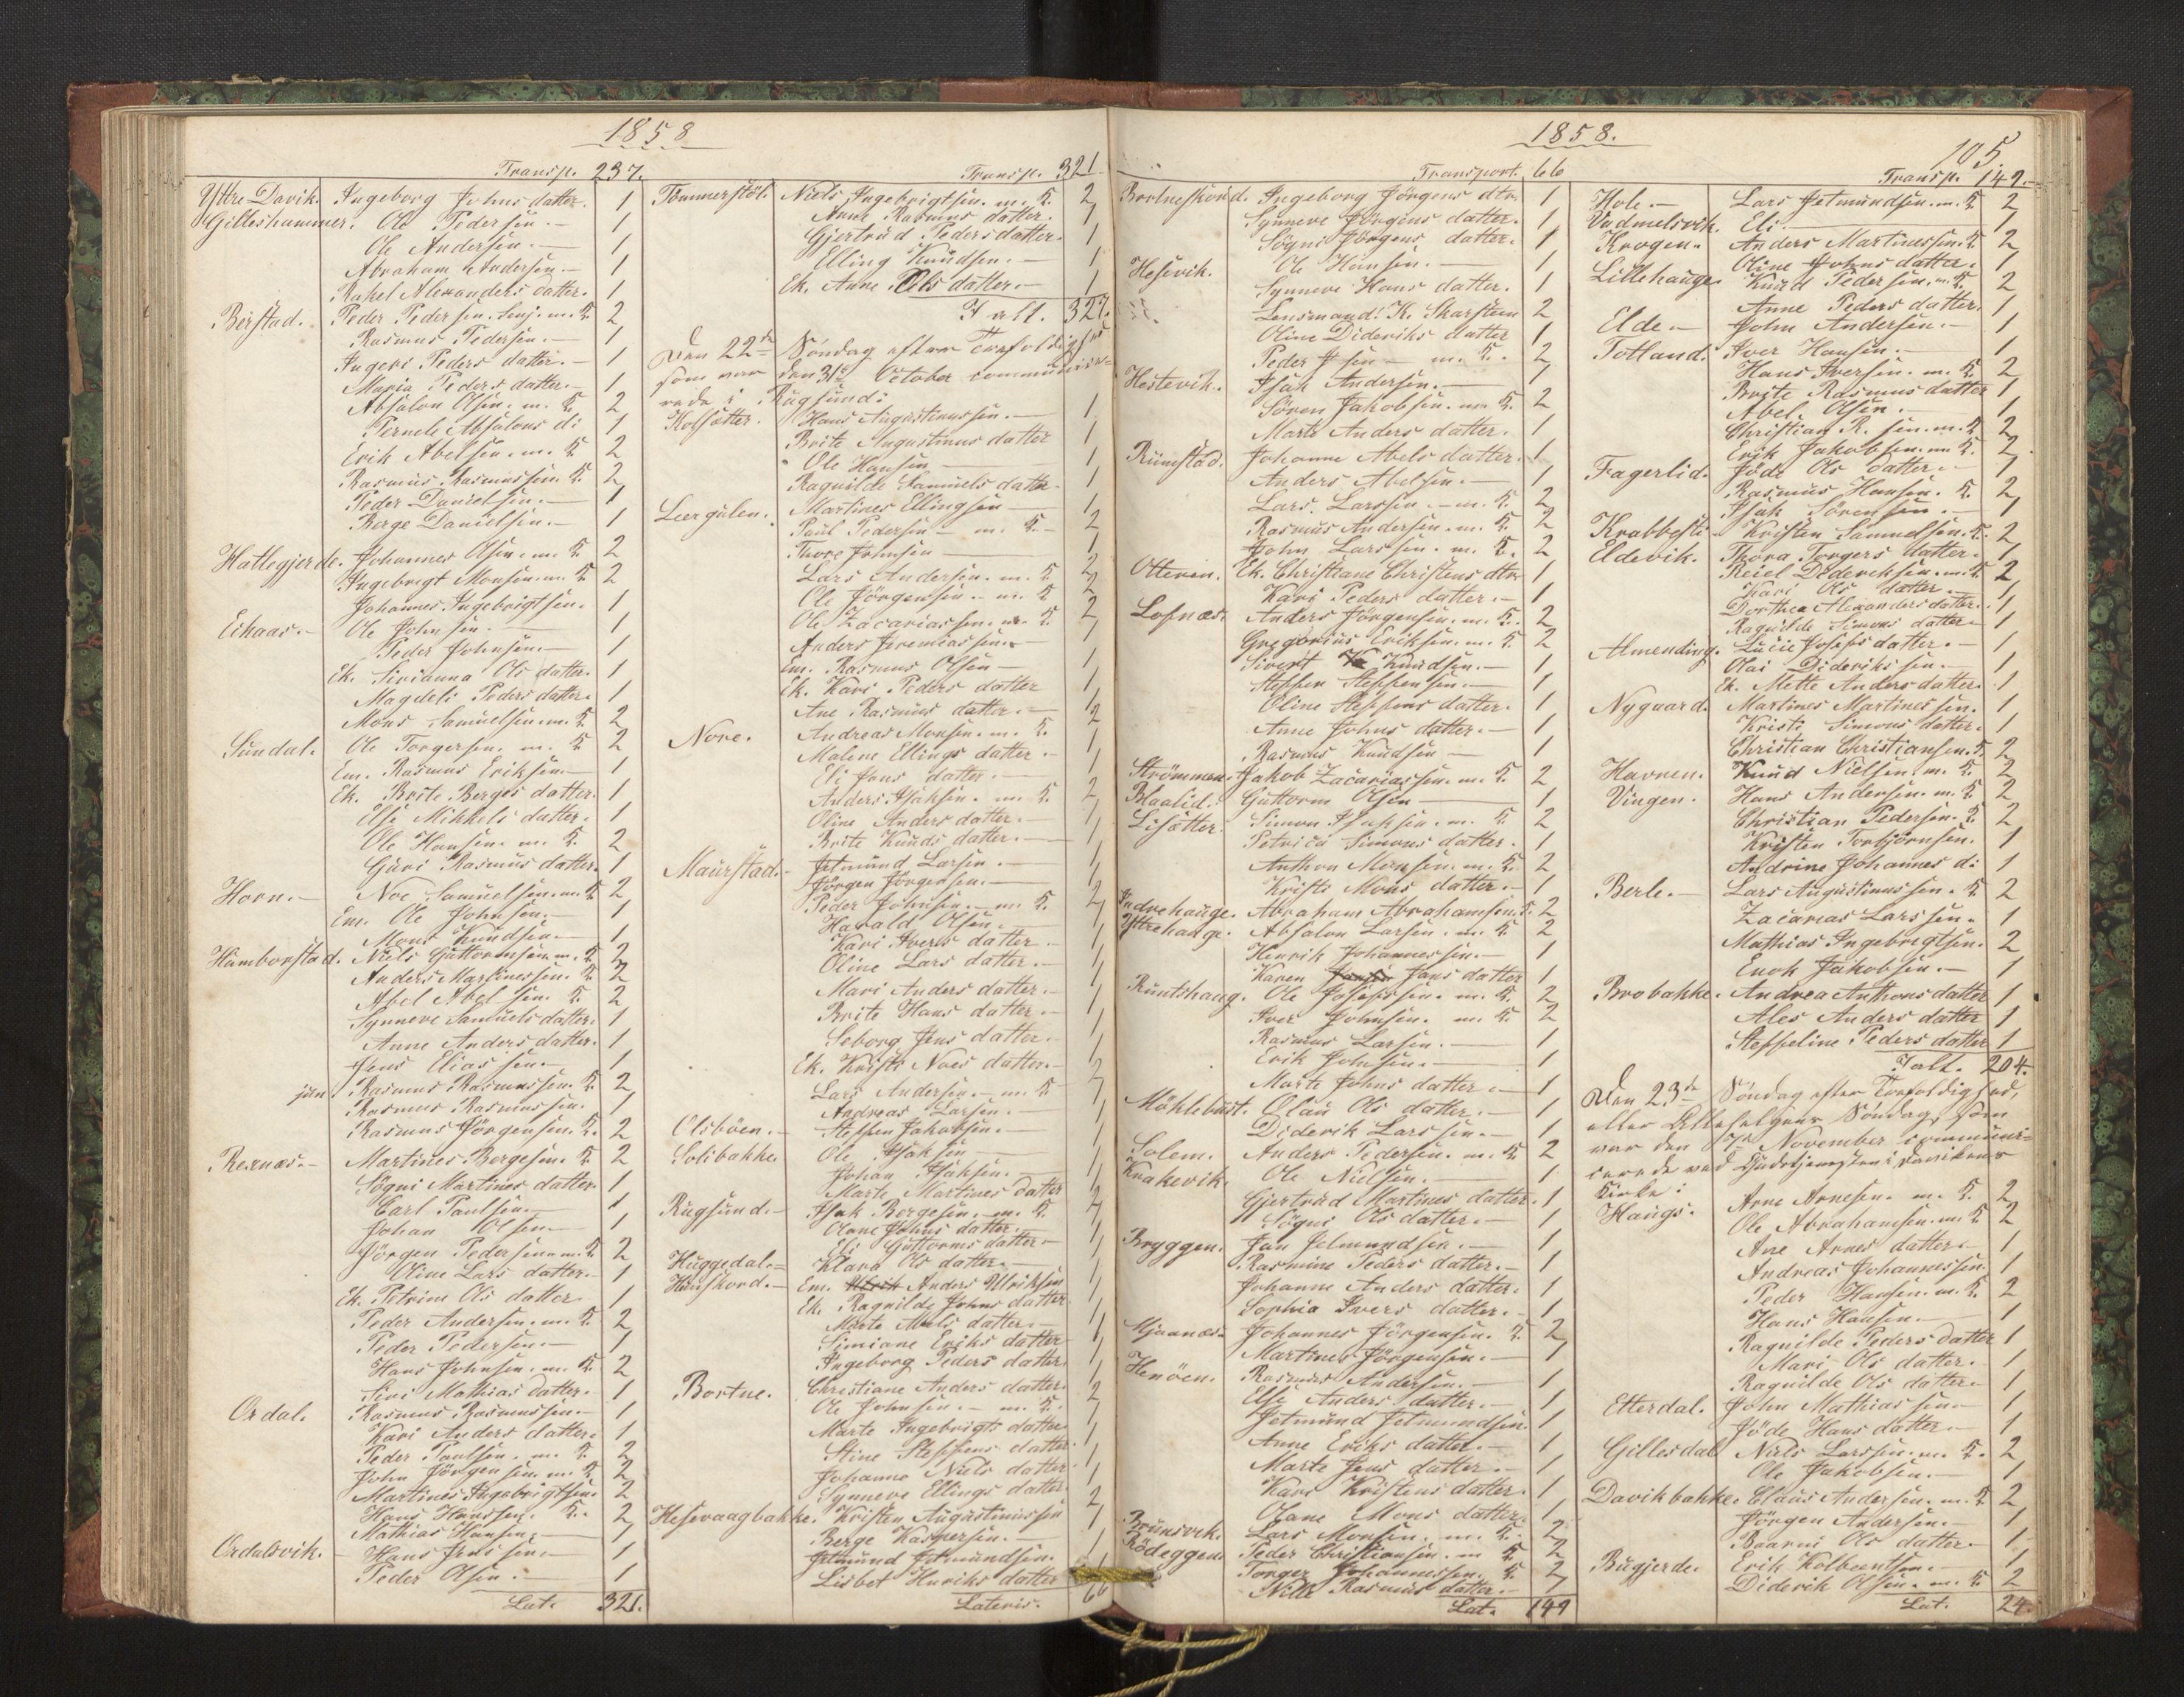 1858
Transp. 237.
Yttre Davik. Ingeborg Johns datter. 1
Gilleshammer. Ole Pedersen. 1
Ole Andersen. 1
Abraham Andersen. 1
Rakel Alexanders datter. 1
Birstad. Peder Pedersen. Senj. m. K. 2
Rasmus Pedersen. 1
Ingeri Peders datter. 1
Maria Peders datter. 1
Absalon Olsen. m. K. 2
Pernele Absalons d: 1
Erik Abelsen. m. K. 2
Rasmus Rasmussen. K. 2
Peder Danielsen. 1
Berge Danielsen. 1
Hattegjerde. Johannes Olsen. m. K. 2
Ingebrigt Monsen. m. K. 2
Johannes Ingebrigtsen. 1
Eihaas. Ole Johnsen. 1
Peder Johnsen. 1
Ek. Sirianna Ols datter. 1
Magdeli Peders datter. 1
Mons Samuelsen. m. K. 2
Sundal. Ole Torgersen. m. K. 2
Em. Rasmus Eriksen. 1
Ek. Brite Berges datter. 1
Else Mikkels datter. 1
Ole Hansen. m. K. 2
Guri Rasmus datter. 1
Horn. Noe Samuelsen. m. K. 2
Em. Ole Johnsen. 1
Mons Knudsen. 1
Hamborstad. Niels Guttormsen. m. K. 2
Anders Martinessen. K. 2
Abel Abelsen. K. 2
Synneve Samuels datter. 1
Anne Anders datter. 1
Jens Eliassen. 1
jun. Rasmus Rasmussen. K. 2
Rasmus Rasmussen. 1
Rasmus Jörgensen. K. 2
Rexnæs. Martines Bergesen. K. 2
Sögni Martines datter. 1
Carl Paulsen. 1
Johan Olsen. 1
Jörgen Pedersen. m. K. 2
Oline Lars datter. 1
Ek. Petrine Ols datter. 1
Peder Andersen. m. K. 2
Peder Pedersen. 1
Hans Johnsen. m. K. 2
Siri Mathias datter. 1
Ordal. Rasmus Rasmussen. 1
Kari Anders datter. 1
Peder Paulsen. m. K. 2
John Jörgensen. m. K. 2
Martines Ingebrigtsen. 2
Hans Hanssen. K. 2
Mathias Hansen. 1
Ordalsvik. Hans Jenssen. 1
Peder Olsen. 1
Lat. 321.
Transp. 321
Tömmerstöl. Niels Ingebrigtsen. m. K. 2
Anne Rasmus datter. 1
Gjertrud Peders datter. 1
Elling Knudsen. 1
Ek. Anne Ols datter. 1
I alt. 327.
Den 22de Söndag efter Trefoldighed
som var den 31te October communice=
rede i Rugsund:
Kolsætter. Hans Augustinussen. 1
Brite Augustinus datter 1
Ole Hansen 1
Ragnilde Samuels datter 1
Leergulen. Martines Ellingsen 1
Paul Pedersen m. K. 2
Thore Johnsen 1
Lars Andersen. m. K. 2
Ole Jörgensen. m. K. 2
Ole Zacariassen. m. K. 2
Anders Jeremiassen. 1
Em. Rasmus Olsen 1
Ek. Kari Peders datter 1
Ane Rasmus datter. 1
Nore. Andreas Monsen. m. K. 2
Malene Ellings datter. 1
Eli Jans datter. 1
Anders Isaksen. m. K. 2
Oline Anders datter. 1
Brite Knuds datter. 1
Maurstad. Jetmund Larsen. 1
Jörgen Jörgensen. 1
Peder Johnsen. m. K. 2
Harald Olsen. 1
Kari Ivers datter. 1
Oline Lars datter. 1
Mari Anders datter. 1
Brite Hans datter. 1
Seborg Jens datter. 1
Ek. Kristi Noes datter. 1
Lars Andersen. m. K. 2
Andreas Larsen. 1
Olsböen. Steffen Jakobsen. 1
Solibakke. Ole Isaksen 1
Johan Isaksen. 1
Marte Martines datter 1
Rugsund. Isak Bergesen. m. K. 2
Oliane Johns datter. 1
Eli Guttorms datter 1
Huggedal. Klara Ols datter. 1
Hauskord. Em. Anders Ulriksen 1
Ek. Ragnilde Johns datter 1
Marte Abels datter. 1
Simiane Eriks datter 1
Ingeborg Peders datter. 1
Bortne. Christiane Anders datter. 1
Ole Johnsen. m. K. 2
Marte Ingebrigts datter 1
Stine Steffens datter 1
Johanne Niels datter 1
Synneve Ellings datter. 1
Hesevaagbakke. Kristen Augustinussen 2
Berge Kaspersen. 1
Jetmund Jetmundsen. 1
Lisbet Henriks datter 1
Lateris. 66
1858.
105.
Transport. 66
Bortneskord. Ingeborg Jörgens dtr. 1
Synneve Jörgens datter. 1
Sögni Jörgens datter. 1
Hesevik. Ole Hansen. 1
Synneve Hans datter. 1
Lensmand K. Skarsteen 2
Oline Dideriks datter 1
Peder Isen m. K. 2
Hestevik. Isak Andersen. 1
Sören Jakobsen. m. K. 2
Marte Anders datter. 1
Rimstad. Johanne Abels datter. 1
Anders Abelsen. 1
Lars Larssen. m. K. 2
Rasmus Andersen. m. K. 2
John Larssen. m. K. 2
Otteren. Ek. Christiane Christens dtr. 1
Kari Peders datter. 1
Lofnæs. Anders Jörgensen. m. K. 2
Gregorius Eriksen. m. K. 2
Sivert Knudsen. 1
Steffen Steffensen. 1
Oline Steffens datter. 1
Anne Johns datter. 1
Rasmus Knudsen 1
Strömmen. Jakob Zacariassen. m. K. 2
Blaalid. Guttorm Olsen 1
Lisætter. Simon Isaksen. m. K. 2
Petrica Simons datter. 1
Anthon Monsen. m. K. 2
Kristi Mons datter. 1
Indrehauge. Abraham Abrahamsen. K. 2
Yttrehauge. Absalon Larsen. m. K. 2
Henrik Johannessen 1
Karen Jans datter 1
Runtshaug. Ole Josefssen. m. K. 2
Iver Johnsen. m. K. 2
Rasmus Larsen. 1
Erik Johnsen. 1
Marte Johns datter. 1
Möhlebust. Olau Ols datter. 1
Diderik Larssen. 1
Solem. Anders Pedersen. m. K. 2
Krakevik. Ole Nielsen. 1
Gjertrud Martines datter. 1
Sögni Ols datter. 1
Bryggen. Jan Jetmundsen. 1
Rasmine Peders datter. 1
Johanne Anders datter. 1
Sophia Ivers datter. 1
Mjaanæs. Johannes Jörgensen. K. 2
Martines Jörgensen. 1
Henöen. Rasmus Andersen. 1
Else Anders datter. 1
Jetmund Jetmundsen. 1
Anne Eriks datter. 1
Marte Jens datter. 1
Kari Kristens datter. 1
Oliane Mons datter. 1
Brunsvik. Lars Monsen. m. K. 2
Rödeggen. Peder Christiansen. m K. 2
Torger Johannessen. K. 2
Nille Rasmus datter. 1
Lat. 149
Transp. 149.
Hole. Lars Jetmundsen. m. K. 2
Vadmelsvik. Eli 1
Krogen. Anders Martinessen. K. 2
Oline Johns datter. 1
Lillehauge. Knud Pedersen. m. K. 2
Anne Peders datter. 1
Elde. John Andersen. 1
Totland. Iver Hansen. 1
Hans Iversen. m. K. 2
Brite Rasmus datter 1
Abel Olsen. 1
Christian R. sen. m. K. 2
Erik Jakobsen. m. K. 2
Fagerlid. Jöde Ols datter. 1
Rasmus Hansen. K. 2
Isak Sörensen. 1
Krabbesti. Kristen Samuelsen. K. 2
Eldevik. Thora Torgers datter. 1
Reiel Dideriksen. m. K. 2
Kari Ols datter. 1
Dorthea Alexanders datter. 1
Ragnilde Simons datter 1
Almending. Lucie Josefs datter. 1
Olai Dideriksen. 1
Ek. Mette Anders datter. 1
Nygaard. Martines Martinessen. 1
Kristi Simons datter. 1
Christian Christiansen. K. 2
Havnen. Knud Nielsen. m. K. 2
Vingen. Hans Andersen. m. K. 2
Christian Pedersen. K. 2
Kristen Torbjörnsen. 1
Andrine Johannes d: 1
Berle. Lars Augustinussen. K. 2
Zacarias Larssen. 1
Mathias Ingebrigtsen. 2
Enok Jakobsen. 1
Brobakke. Andrea Anthons datter 1
Ales Anders datter 1
Steffeline Peders datter 1
I alt. 204.
Den 23de Söndag efter Trefoldighed,
eller Allehelgens Söndag, som
var den 7de November communi=
cerede ved Gudstjenesten i Davikens
Kirke:
Haugs. Arne Arnesen. m. K. 2
Ole Abrahamsen. m. K. 2
Ane Arnes datter. 1
Andreas Johannessen. 1
Peder Hansen. m. K. 2
Hans Hansen. 1
Ragnilde Peders datter 1
Mari Ols datter. 1
Ragnilde Ols datter. 1
Etterdal. John Mathiassen. 1
Jöde Hans datter. 1
Gillesdal Niels Larssen. m. K. 2
Ole Jakobsen. 1
Davikbakke. Claus Andersen. m. K. 2
Jörgen Andersen. 1
Baarni Ols datter. 1
Bugjerde. Erik Kolbentsen. 1
Diderik Olsen. m. K. 2
Lat. 24.